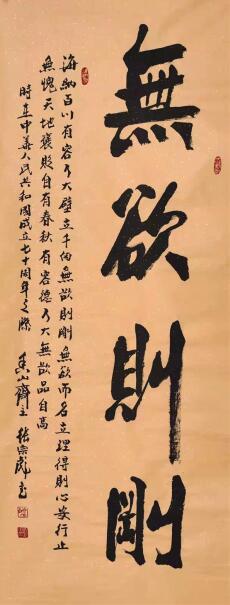 無欲則剛
海納百川有容乃大壁立千仞無欲則剛無欲而名立理得則心安行止
無愧天地褒貶自有春秋有容德乃大無欲品自高
時在中華人民共和國成立七十周年之際
齋主